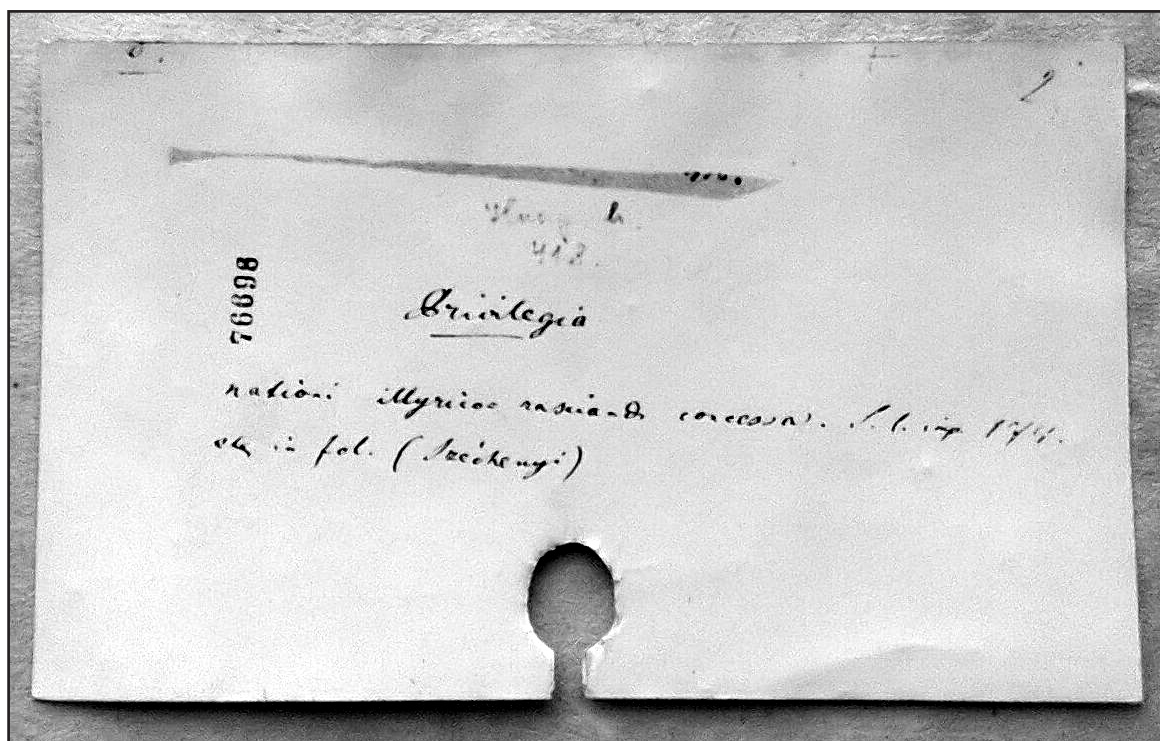 Hung. h.
418.
76698
Privilegia
nationi illyricae rascianae concessa. S. l. imp.
in fol. (Széchenyi)